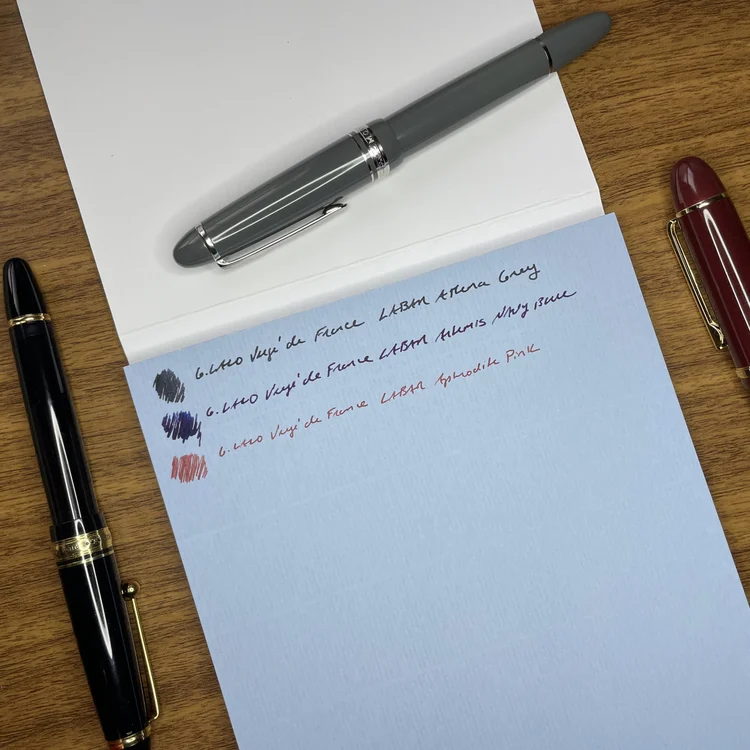 G. LALO Vergé de France LABAN Athena Grey
G. LALO Vergé de France LABAN Artemis Navy Blue
G. LALO Vergé de France LABAN Aphrodite Pink